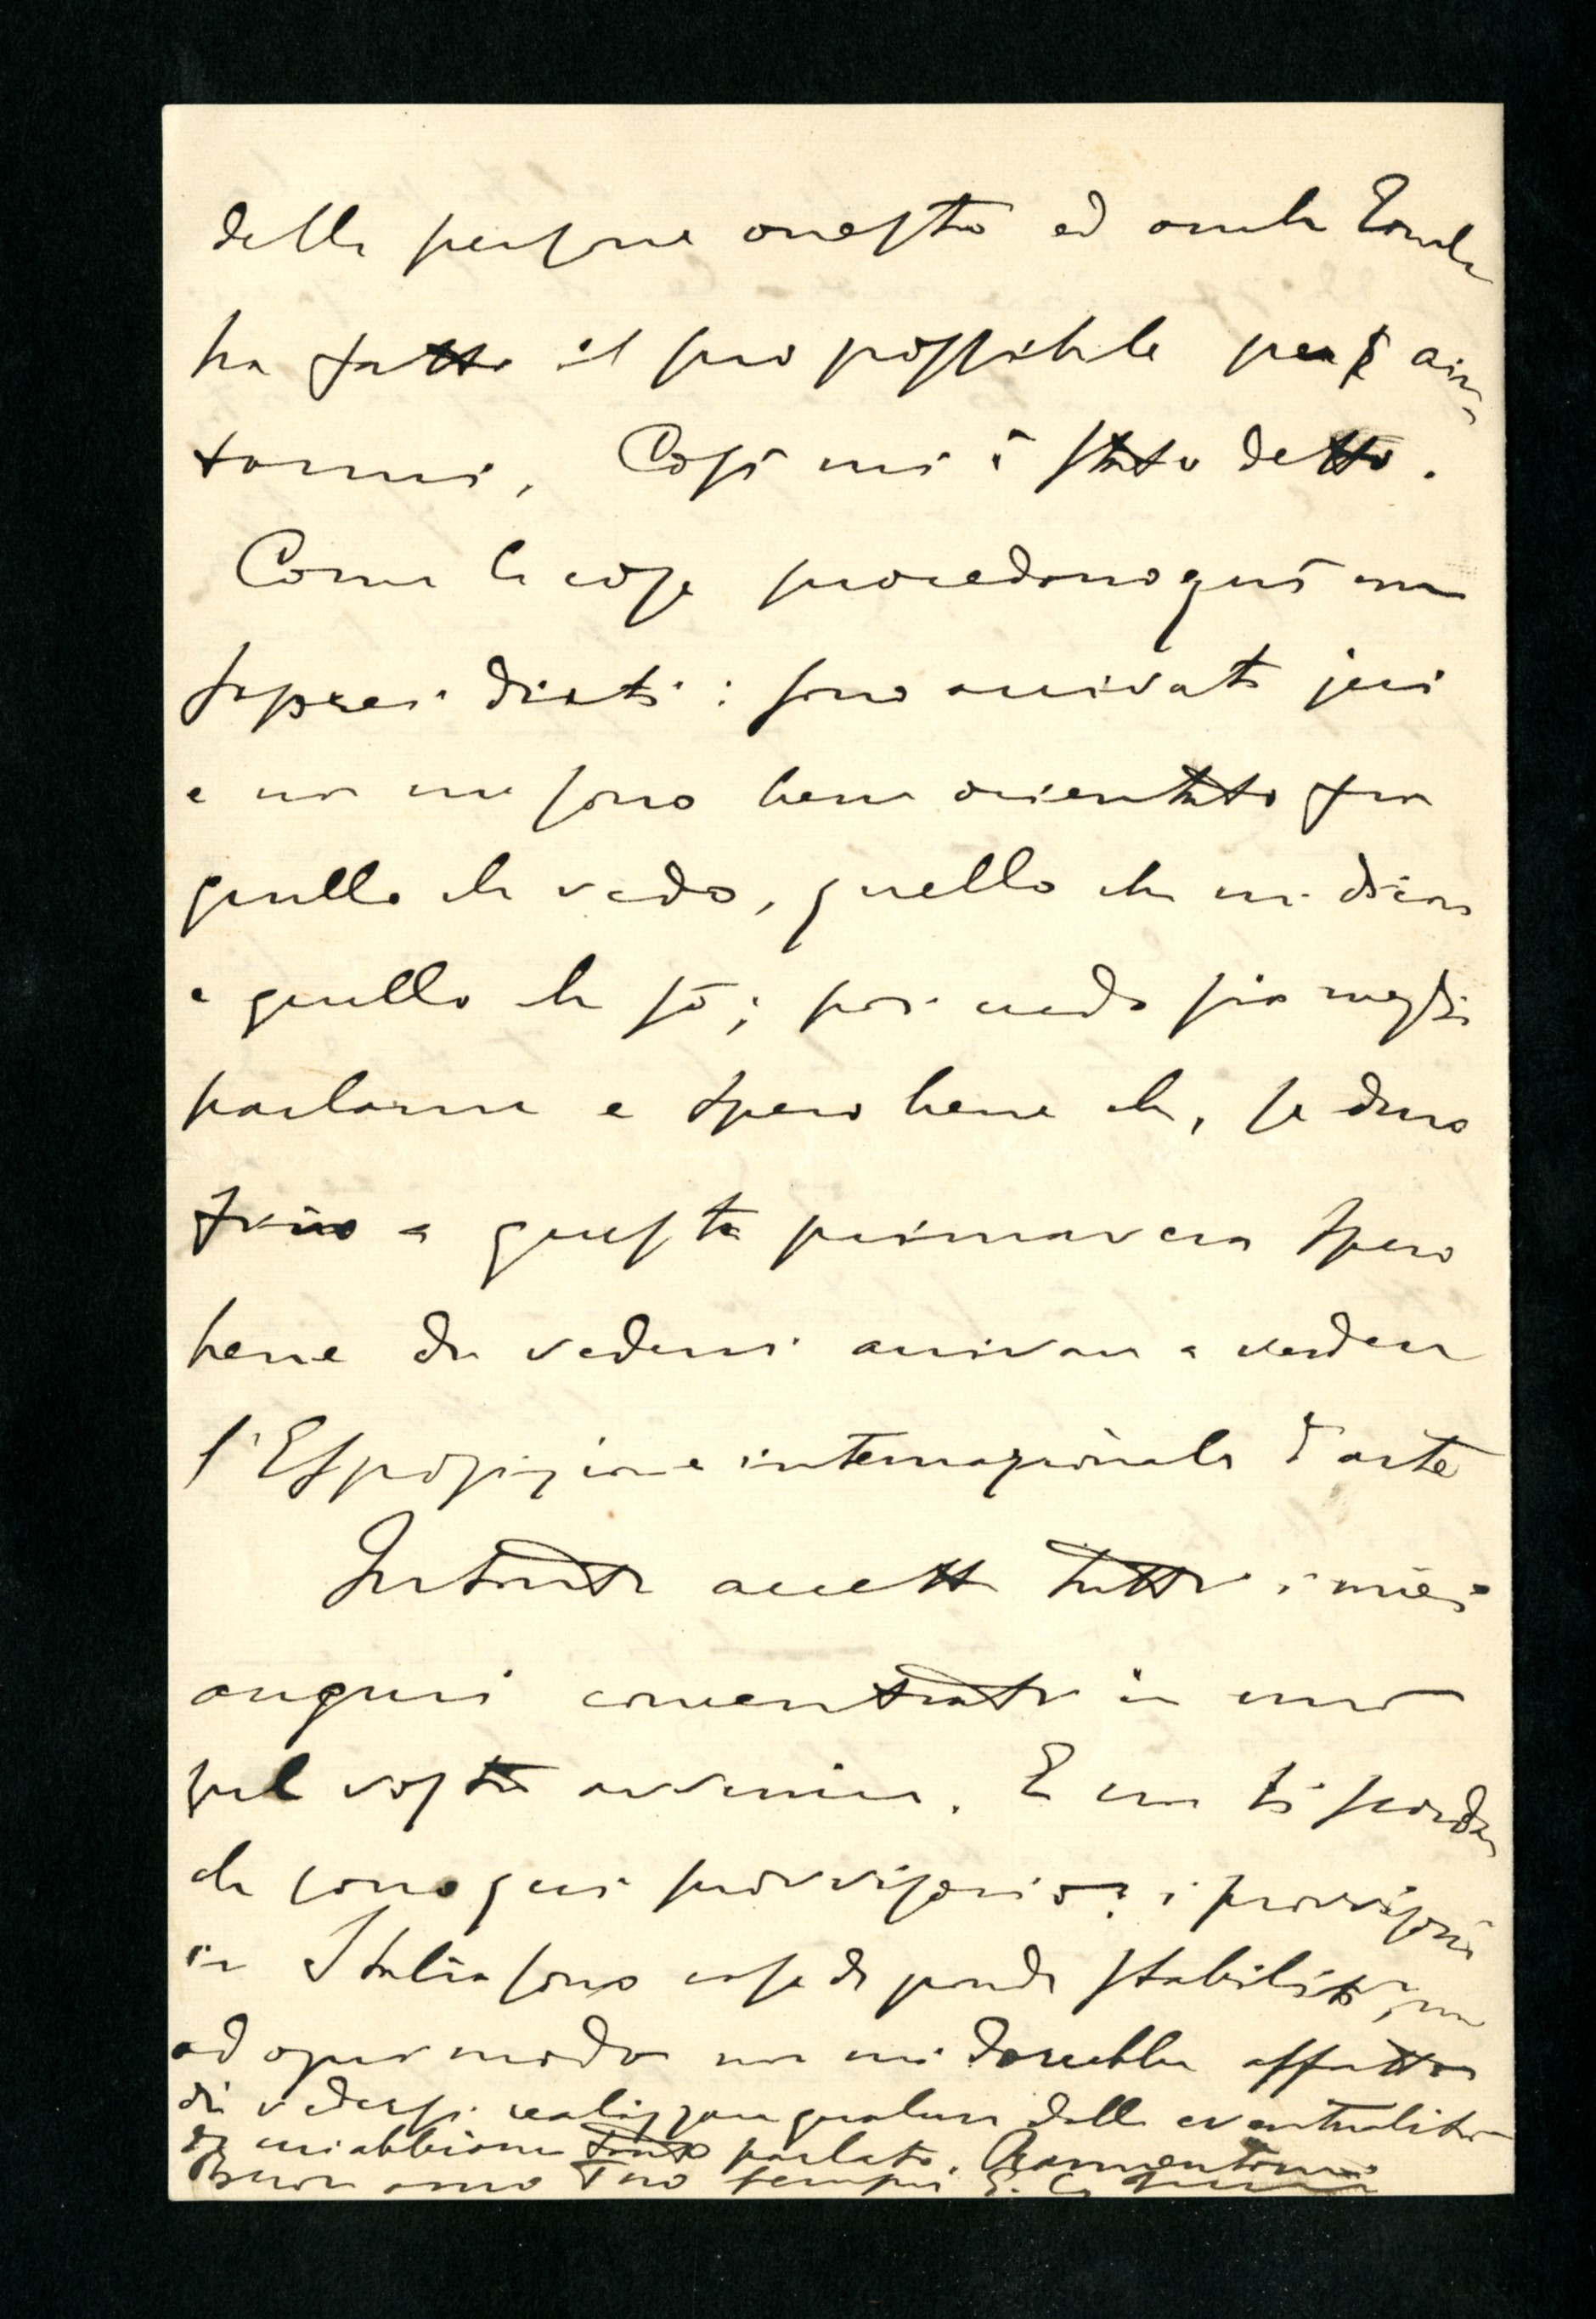 delle persone oneste ed anche
ha fatto il suo possibile per aiu
tarmi. Così mi è stato detto.
Come le cose procedono quì non
saprei dirti: sono arrivato jeri
e non me sono bene orientato fra
quello che vedo, quello che mi dicono
e quello che sò; poi credo sia meglio
parlarne e spero bene che, se duro
fino a questa primavera spero
bene di vedervi arrivare a vedere
l'Esposizione internazionale d'arte
Intanto accetta tutti i miei
auguri concentrati in uno
pel vostro avvenire. E non ti scordar
che sono qui provvisorio: i provvisori
in Italia sono cose di grande stabilità, ma
ad ogni modo non mi dorrebbe affatto
di vedersi realizzare qualcuna delle eventualità
di cui abbiamo tanto parlato.
Buon anno Tuo sempre